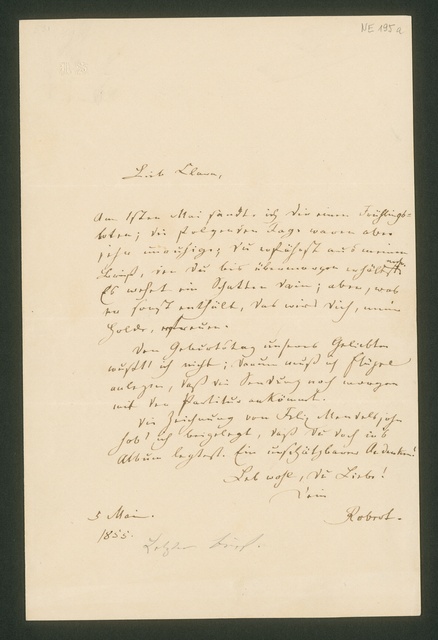 NE 195a
Liebe Clara,
Am 1sten Mai sandte ich Dir einen Frühlings=
boten; die folgenden Tage waren aber
sehr unruhige; Du erfährst aus meinem
mehr.
Brief, den Du bis übermorgen erhältst
Es wehet ein Schatten darin; aber, was
er sonst enthält, das wird Dich, meine
Holde, erfreuen.
Den Geburtstag unseres Geliebten
wußt' ich nicht; darum muß ich Flügel
anlegen, daß die Sendung noch morgen
mit der Partitur ankömmt.
Die Zeichnung von Felix Mendelssohn
hab' ich beigelegt, daß Du doch ins
Album legtest. Ein unschätzbares Andenken!
Leb wohl, Du Liebe!
Dein
Robert.
5 Mai.
1855.
Letzter Brief.